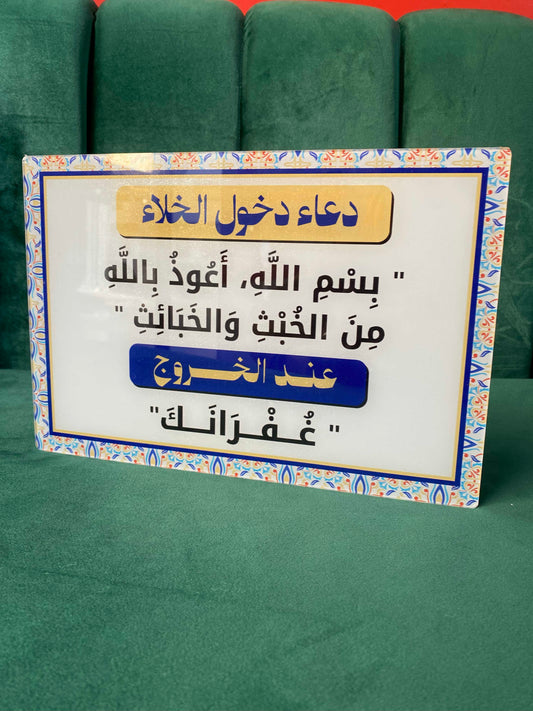 دعاء دخول الخلاء
" بِسْمِ اللَّهِ، أَعُوذُ بِاللَّهِ
مِنَ الخُبْثِ وَالخَبَائِثِ "
عند الخروج
" غُفْرَانَكَ"